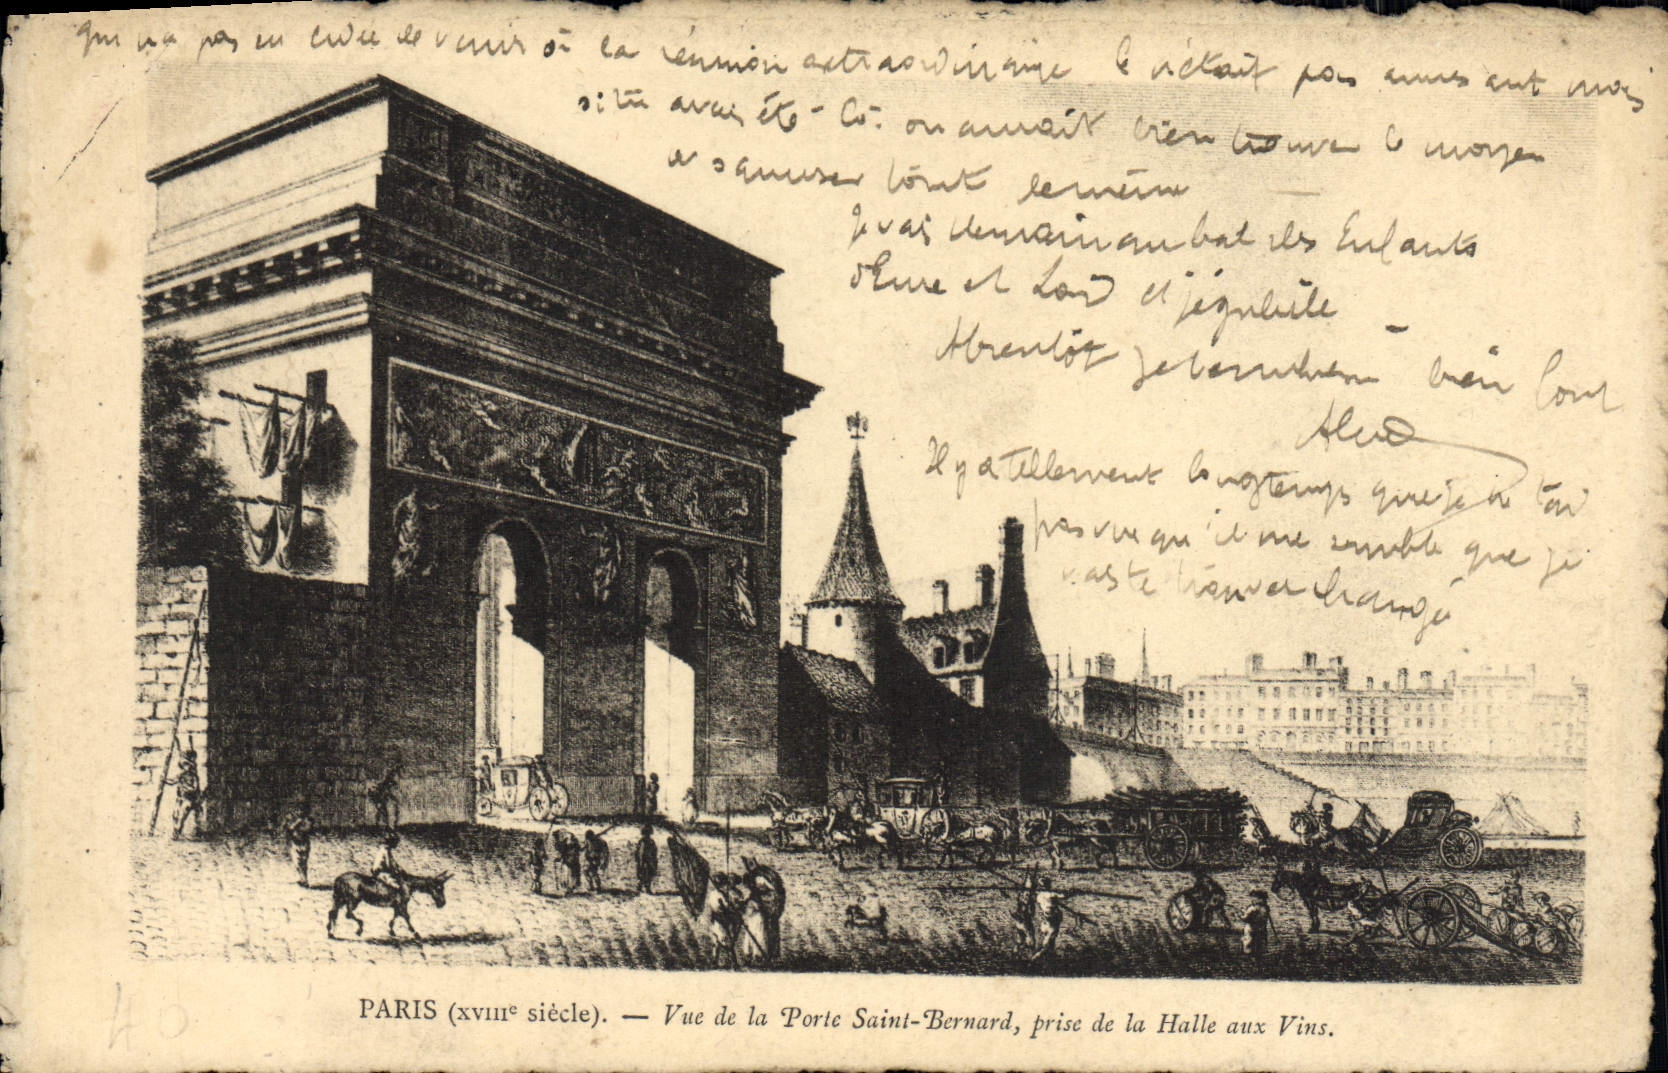 qui n'a pas eu idée de venir à la réunion extraordinaire Ce n'était pas amusant mais
si tu avais été là on aurait bien trouvé le moyen
de s'amuser tout de même
Je vais demain au bal des Enfants
d'Eure et Loir et
A bientôt je t'embrasse bien fort
Il y a tellement longtemps que je ne t'ai
pas vue qu'il me semble que je
vais te trouver changée
40
PARIS (XVIIIe siècle). — Vue de la Porte Saint-Bernard, prise de la Halle aux Vins.